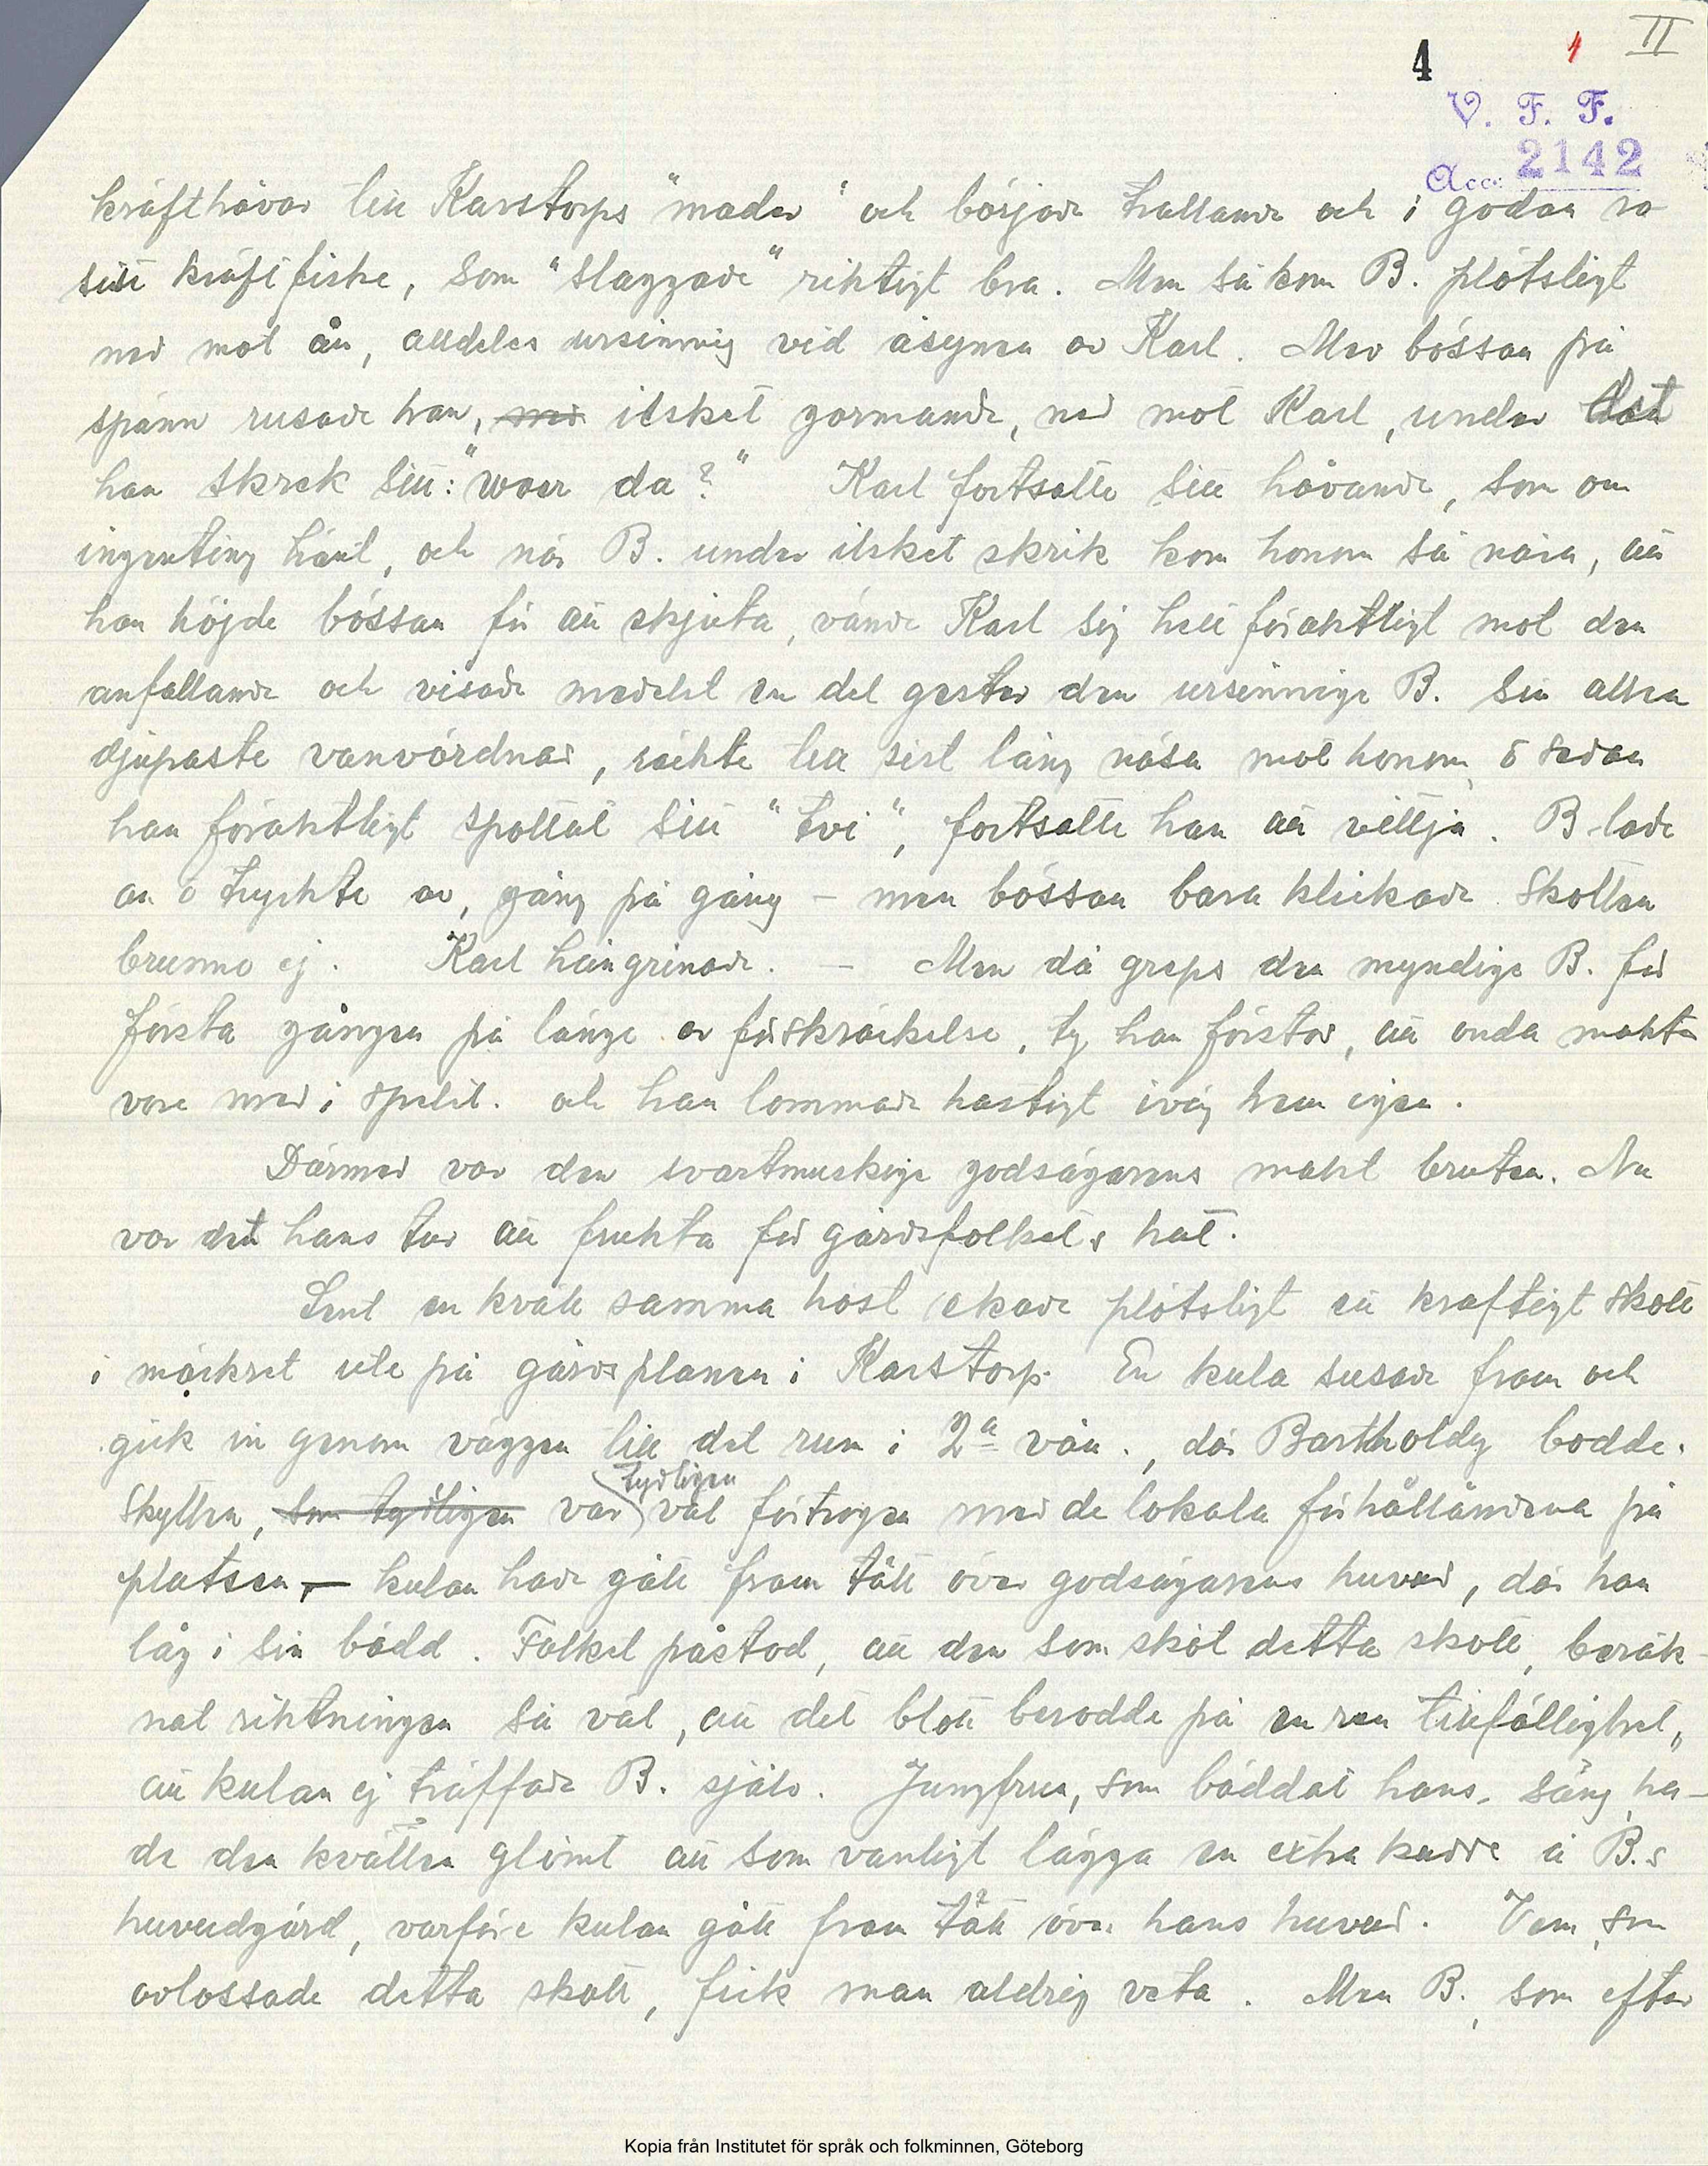 4 1 II
V. F. F.
Acc: 2142
kräfthåvar till Karstorps "mader" och började trallande och i godan ro
sitt kräftfiske, som "slaggade" riktigt bra. Men så kom B. plötsligt
ned mot ån, alldeles ursinnig vid åsynen av Karl. Med bössan på
spänn rusade han, med ilsket gormande, ned mot Karl, under det
han skrek sitt: "woer da?" Karl fortsatte sitt håvande, som om
ingenting hänt, och när B. under ilsket skrik kom honom så nära, att
han höjde bössan för att skjuta, vände Karl sig helt föraktligt mot den
anfallande och visade medelst en del gester den ursinnige B. sin allra
djupaste vanvördnad, räckte till sist lång näsa mot honom, o sedan
han föraktligt spottat sitt "tvi", fortsatte han att vittja. B. lade
an o tryckte av, gång på gång – men bössan bara klickade. Skotten
brunno ej. Karl hångrinade. – Men då greps den myndige B. för
första gången på länge av förskräckelse, ty han förstod, att onda makter
vore med i spelet. och han lommade hastigt iväg hem igen.
Därmed var den svartmuskige godsägarens makt bruten. Nu
var det hans tur att frukta för gårdsfolkets hat.
Sent en kväll samma höst ekade plötsligt ett kraftigt skott
i mörkret ute på gårdsplanen i Karstorp. En kula susade fram och
gick in genom väggen till det rum i 2a vån., där Bartholdy bodde.
tydligen
Skytten, som tydligen var väl förtrogen med de lokala förhållandena på
platsen, – kulan hade gått fram tätt över godsägarens huvud, där han
låg i sin bädd. Folket påstod, att den som sköt detta skott, beräk-
nat riktningen så väl, att det blott berodde på en ren tillfällighet,
att kulan ej träffade B. själv. Jungfrun, som bäddat hans säng, ha-
de den kvällen glömt att som vanligt lägga en extra kudde å B.s
huvudgärd, varför kulan gått fram tätt över hans huvud. Vem, som
avlossade detta skott, fick man aldrig veta. Men B., som efter
Kopia från Institutet för språk och folkminnen, Göteborg